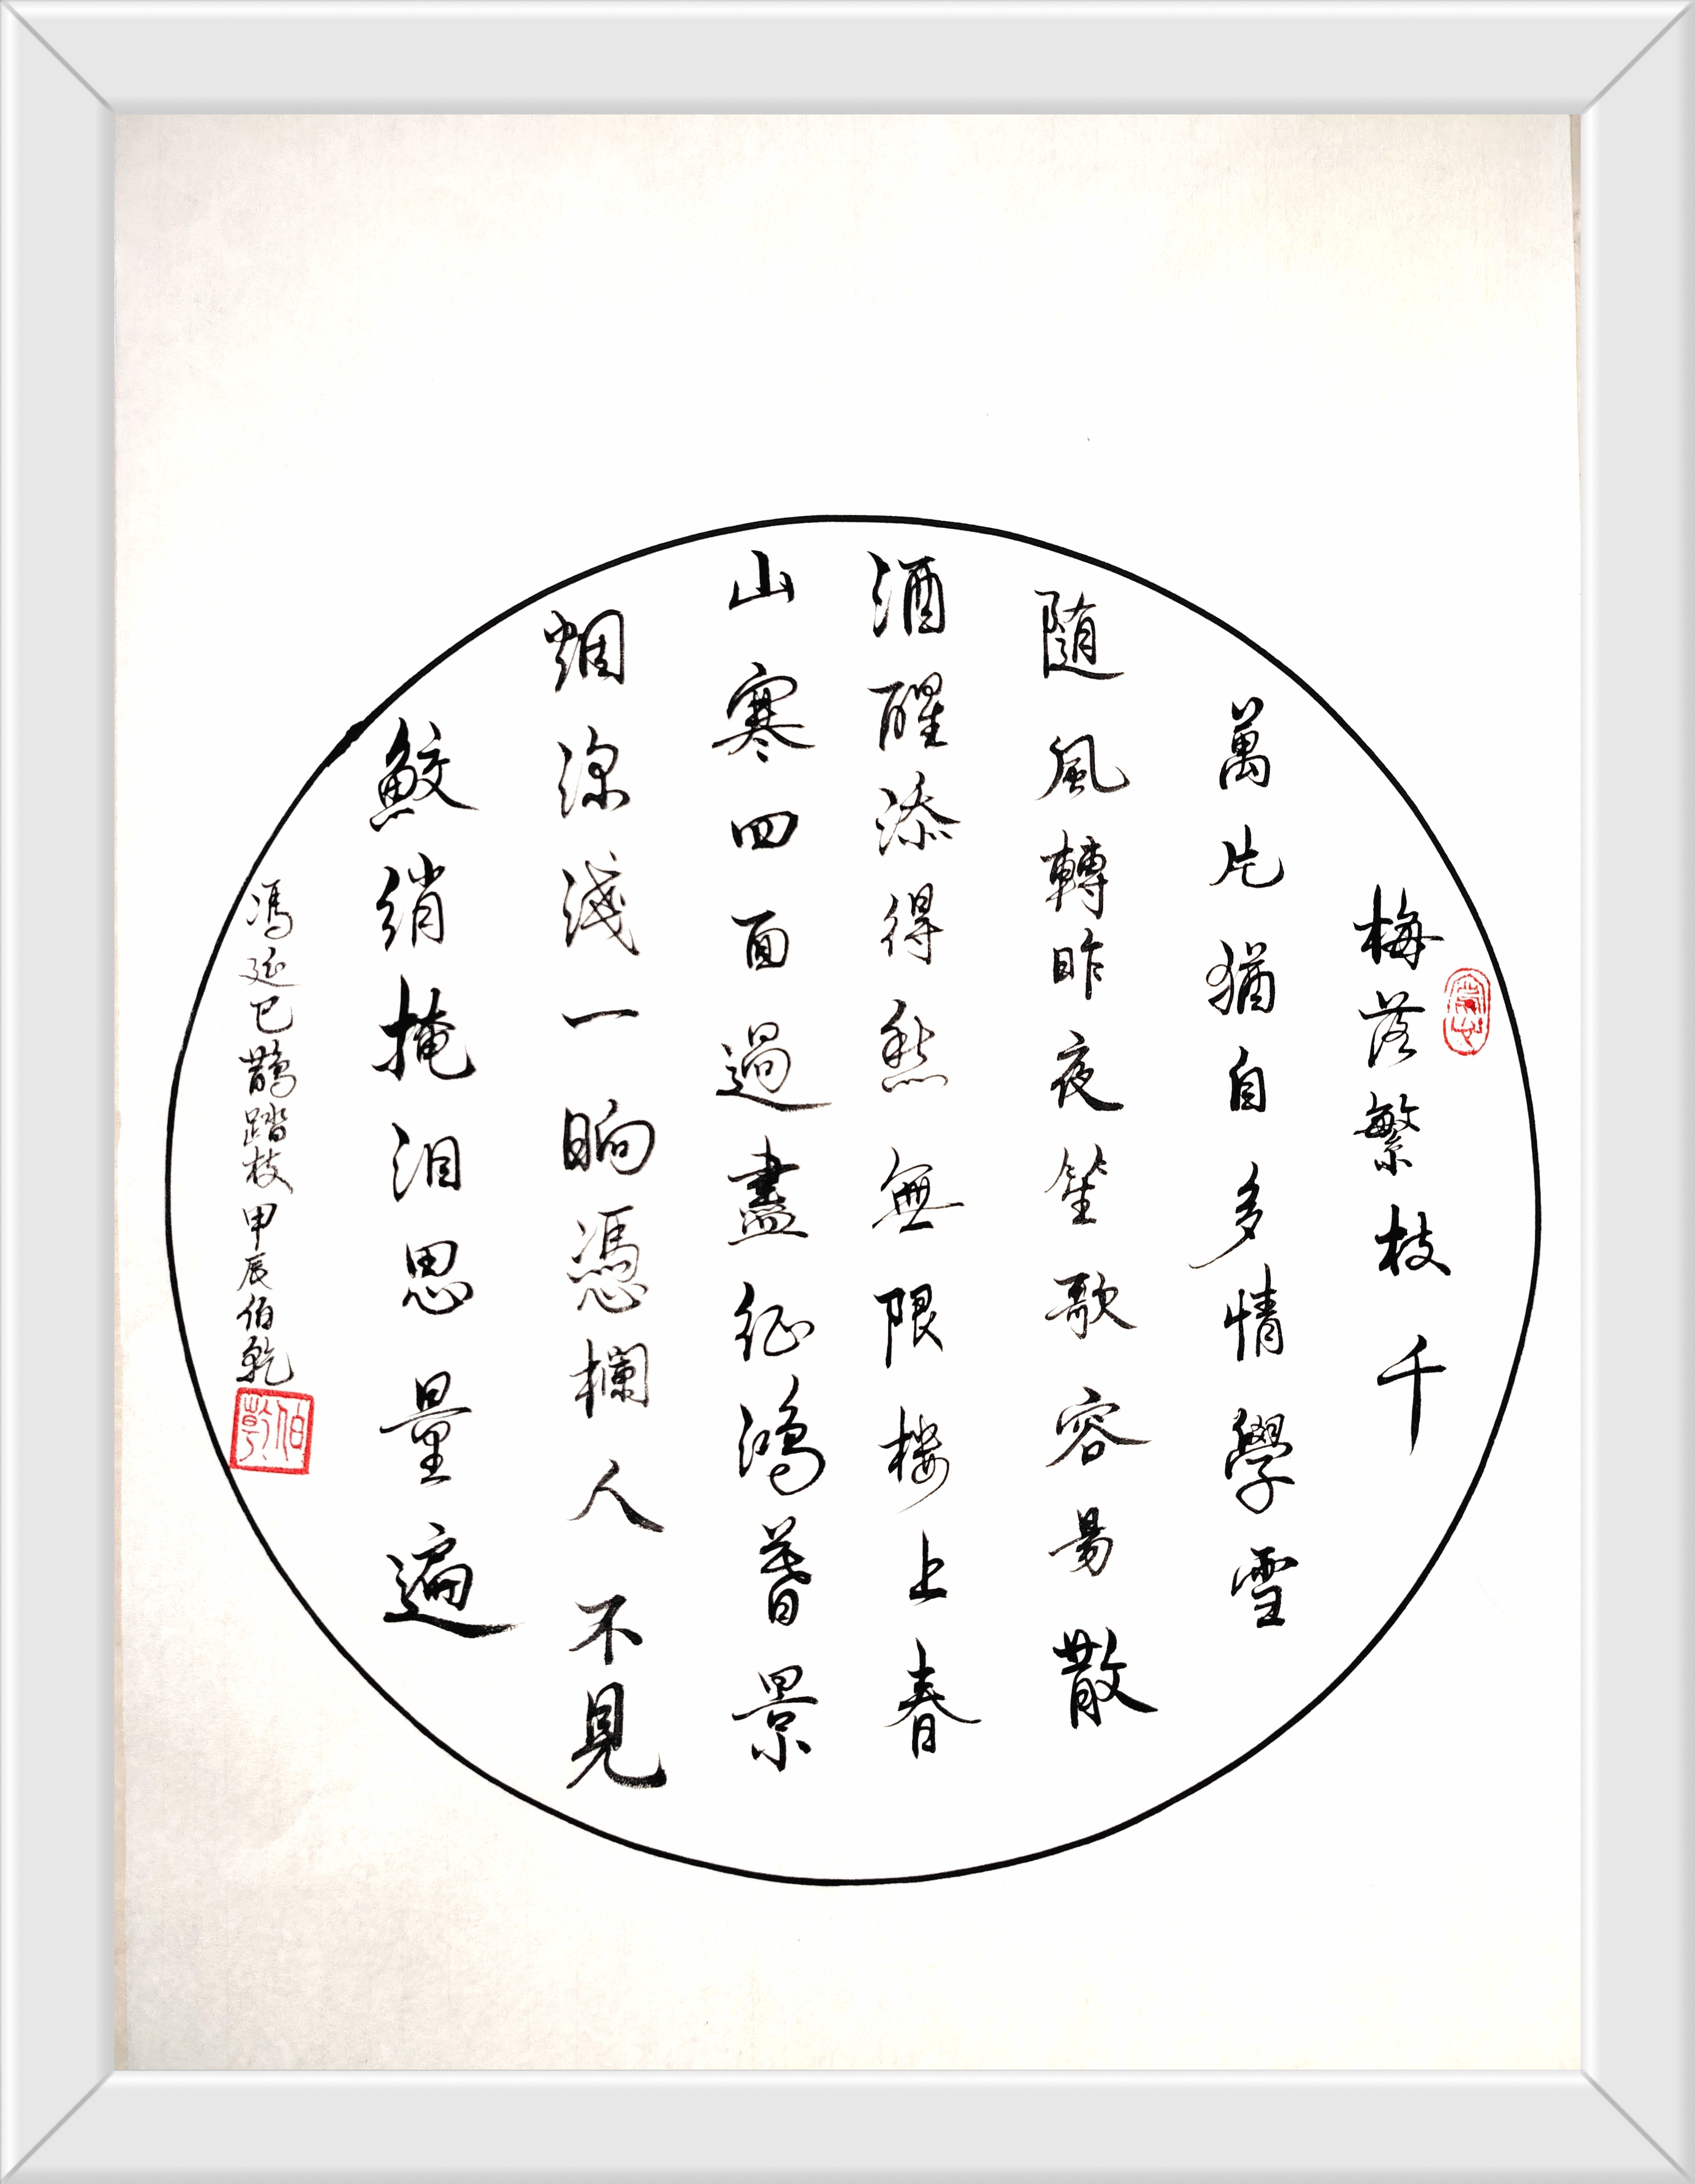 梅落繁枝千
萬片猶自多情學雪
随風轉昨夜笙歌容易散
酒醒添得愁無限樓上春
山寒四面過盡征鴻暮景
烟深淺一晌憑欄人不見
鮫綃掩泪思量遍
馮延巳鵲踏枝甲辰伯乾
伯乾